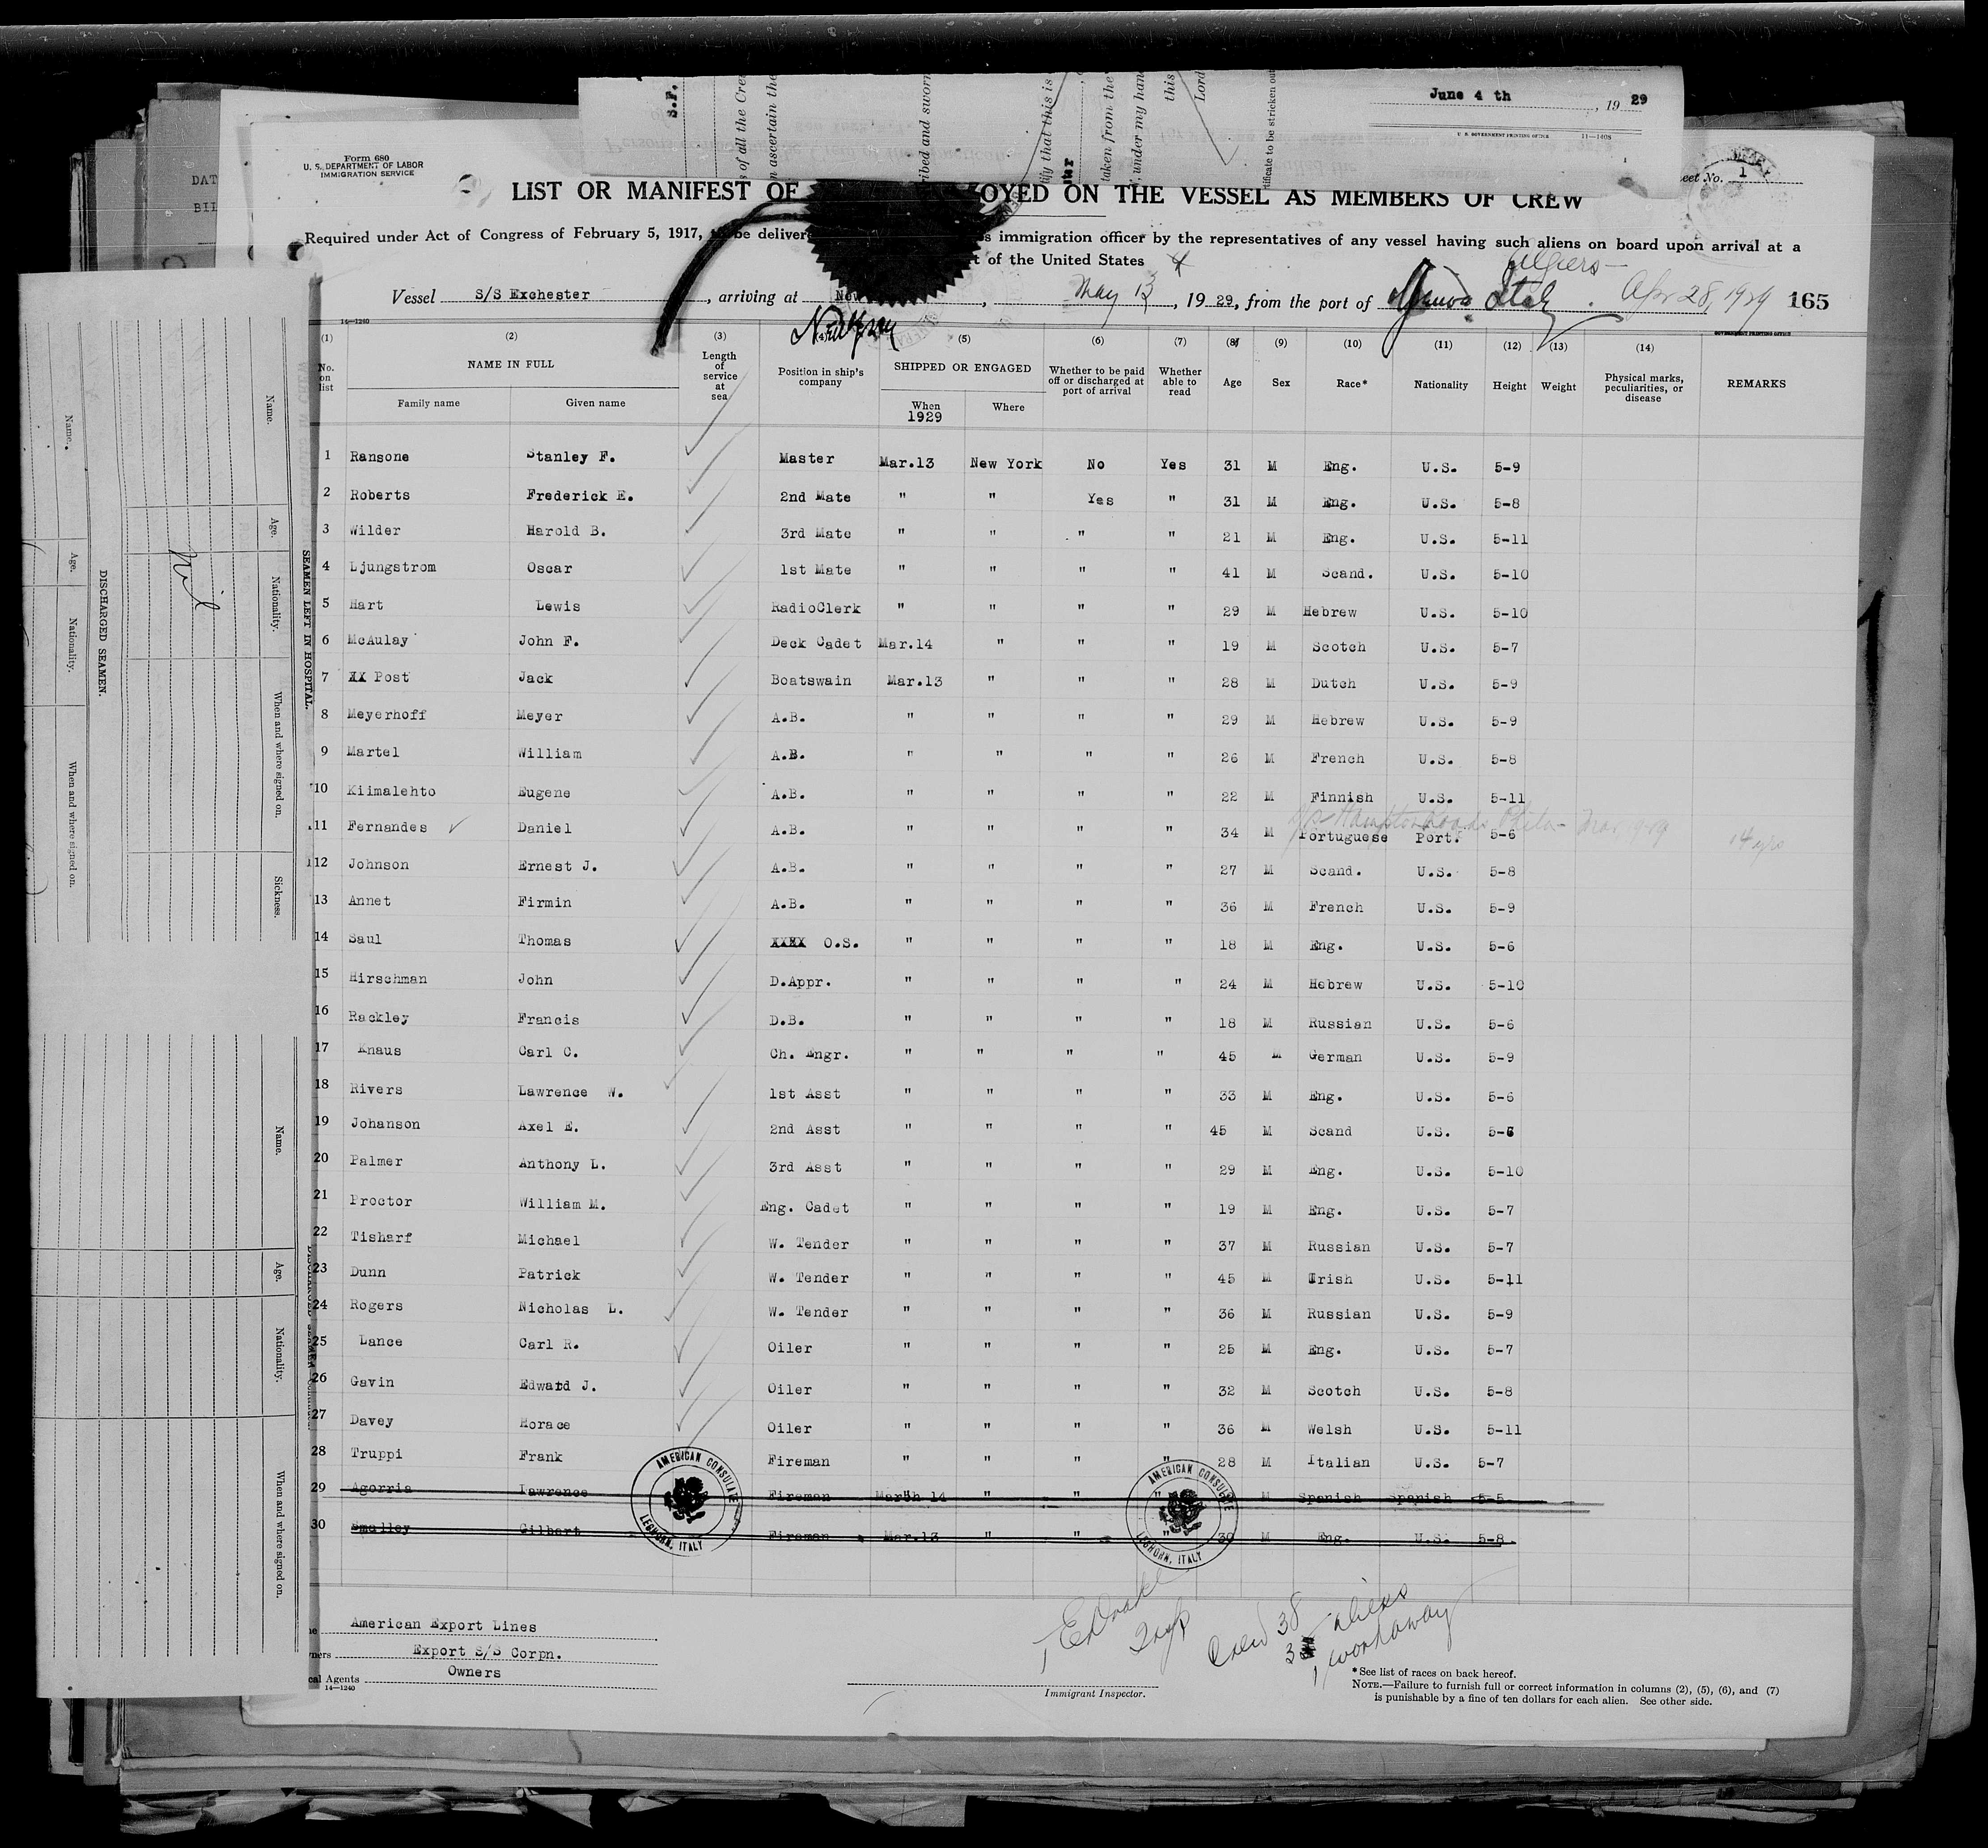 June 4 th , 19 29
U. S. GOVERNMENT PRINTING OFFICE 11—1408
S.F.
s of all the Cre
n ascertain the
ribed and sworn
ify that this is
taken from the
, under my hand
this
Lord
tificate to be stricken out
Form 680
U. S. DEPARTMENT OF LABOR
IMMIGRATION SERVICE
eet No. 1
LIST OR MANIFEST OF OYED ON THE VESSEL AS MEMBERS OF CREW
Required under Act of Congress of February 5, 1917, be delivere s immigration officer by the representatives of any vessel having such aliens on board upon arrival at a
t of the United States
Algiers—
Vessel S/S Exchester , arriving at New , May 13 , 19 29, from the port of Genoa Italy . Apr 28, 1929 165
New York
14—1240
GOVERNMENT PRINTING OFFICE
(1) (2) (3) (4) (5) (6) (7) (8) (9) (10) (11) (12) (13) (14)
No. on list NAME IN FULL Length of service at sea Position in ship's company SHIPPED OR ENGAGED Whether to be paid off or discharged at port of arrival Whether able to read Age Sex Race* Nationality Height Weight Physical marks, peculiarities, or disease REMARKS
Family name Given name When Where
1929
1 Ransone Stanley F. Master Mar.13 New York No Yes 31 M Eng. U.S. 5-9
2 Roberts Frederick E. 2nd Mate " " Yes " 31 M Eng. U.S. 5-8
3 Wilder Harold B. 3rd Mate " " " " 21 M Eng. U.S. 5-11
4 Ljungstrom Oscar 1st Mate " " " " 41 M Scand. U.S. 5-10
5 Hart Lewis RadioClerk " " " " 29 M Hebrew U.S. 5-10
6 McAulay John F. Deck Cadet Mar.14 " " " 19 M Scotch U.S. 5-7
7 XX Post Jack Boatswain Mar.13 " " " 28 M Dutch U.S. 5-9
8 Meyerhoff Meyer A.B. " " " " 29 M Hebrew U.S. 5-9
9 Martel William A.B. " " " " 26 M French U.S. 5-8
10 Kiimalehto Eugene A.B. " " " " 22 M Finnish U.S. 5-11
Hampton Roads Phila—
11 Fernandes Daniel A.B. " " " " 34 M Portuguese Port. 5-6 14 yrs
12 Johnson Ernest J. A.B. " " " " 27 M Scand. U.S. 5-8
13 Annet Firmin A.B. " " " " 36 M French U.S. 5-9
14 Saul Thomas XXXX O.S. " " " " 18 M Eng. U.S. 5-6
15 Hirschman John D.Appr. " " " " 24 M Hebrew U.S. 5-10
16 Rackley Francis D.B. " " " " 18 M Russian U.S. 5-6
17 Knaus Carl C. Ch. Engr. " " " " 45 M German U.S. 5-9
18 Rivers Lawrence W. 1st Asst " " " " 33 M Eng. U.S. 5-6
19 Johanson Axel E. 2nd Asst " " " " 45 M Scand U.S. 5-6
20 Palmer Anthony L. 3rd Asst " " " " 29 M Eng. U.S. 5-10
21 Proctor William M. Eng. Cadet " " " " 19 M Eng. U.S. 5-7
22 Tisharf Michael W. Tender " " " " 37 M Russian U.S. 5-7
23 Dunn Patrick W. Tender " " " " 45 M Irish U.S. 5-11
24 Rogers Nicholas L. W. Tender " " " " 36 M Russian U.S. 5-9
25 Lance Carl R. Oiler " " " " 25 M Eng. U.S. 5-7
26 Gavin Edward J. Oiler " " " " 32 M Scotch U.S. 5-8
27 Davey Horace Oiler " " " " 36 M Welsh U.S. 5-11
28 Truppi Frank Fireman " " " " 28 M Italian U.S. 5-7
29 Agorria Lawrence Fireman March 14 " " " M Spanish Spanish 5-5
30 Smalley Gilbert Fireman Mar.13 " " " 30 M Eng. U.S. 5-8
AMERICAN CONSULATE LEGHORN, ITALY
AMERICAN CONSULATE LEGHORN, ITALY
Crew 38
3 aliens
1 workaway
American Export Lines
ners Export S/S Corpn.
cal Agents Owners
14—1240
Immigrant Inspector.
*See list of races on back hereof.
NOTE.—Failure to furnish full or correct information in columns (2), (5), (6), and (7)
is punishable by a fine of ten dollars for each alien. See other side.
SEAMEN LEFT IN HOSPITAL.
Name. Age. Nationality. When and where signed on. Sickness.
Nil
DISCHARGED SEAMEN.
Name. Age. Nationality. When and where signed on.
Name. Age. Nationality. When and where signed on.
DAT
BIL